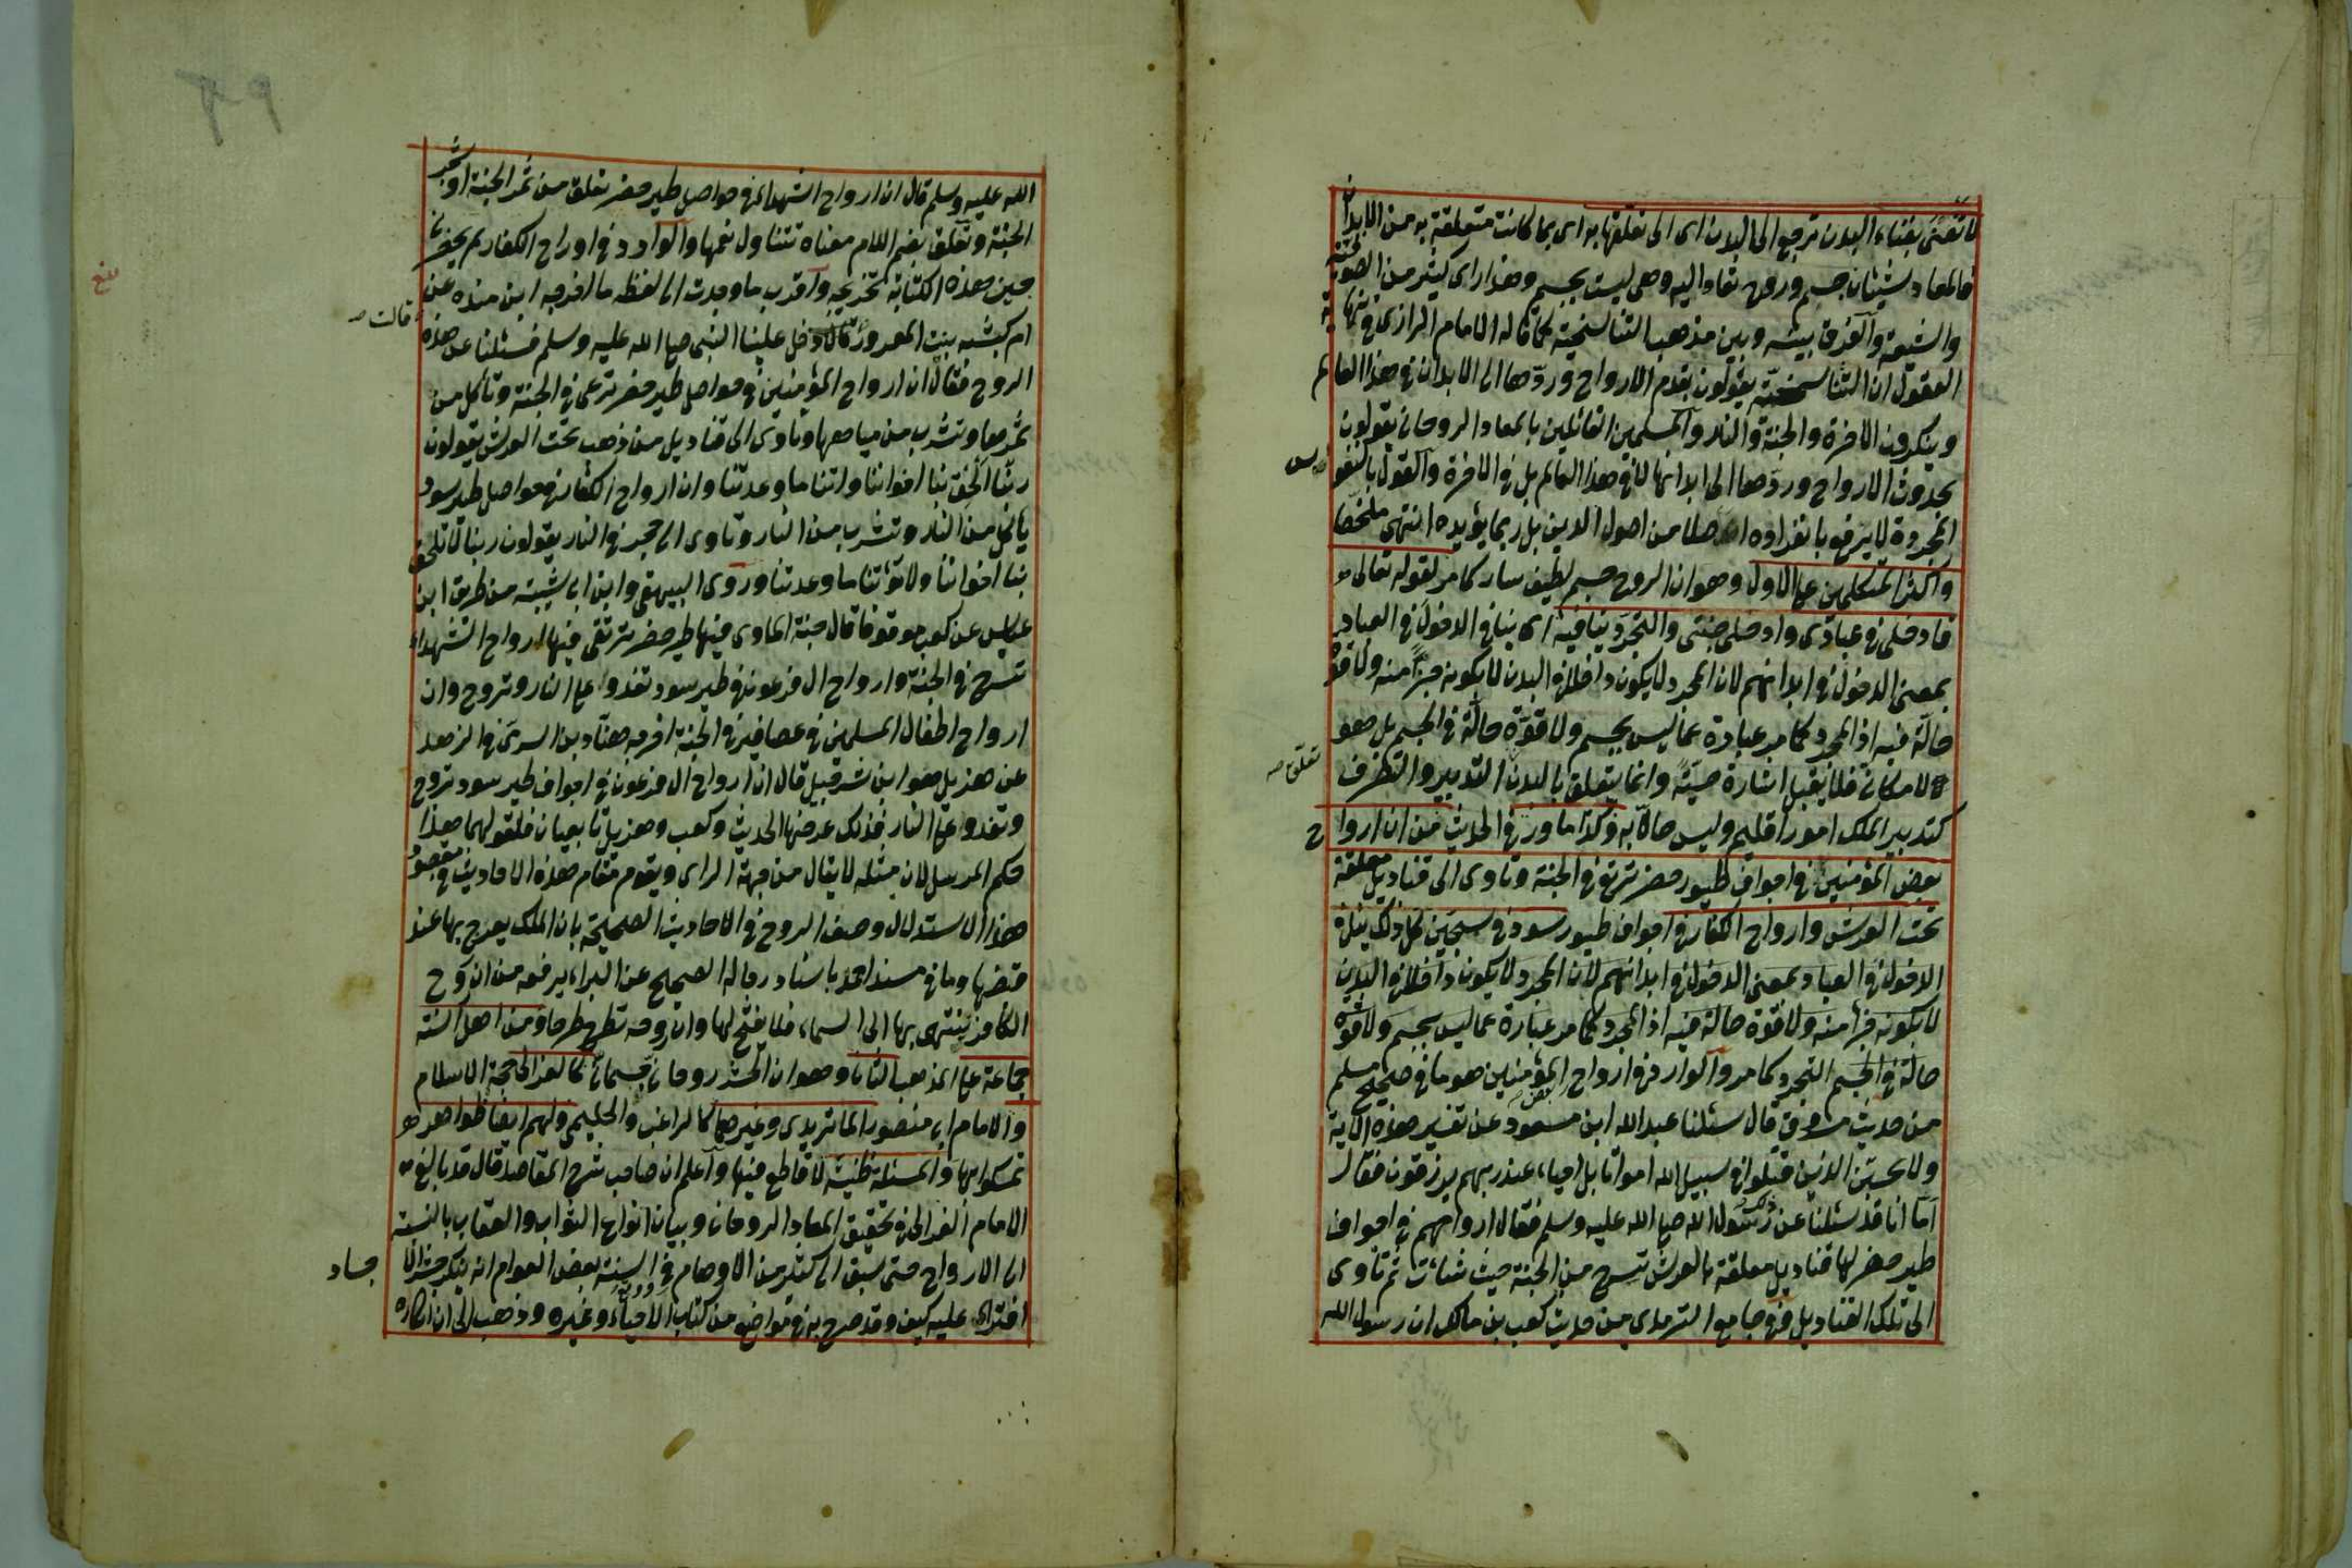 لا تفنى بفناء البدن ترجع الى البدن اى الى تعلقها به اى بما كانت متعلقة به من الابدان
فالمعاد شيئان جسم وروح تعاد اليه وهى ليست بجسم وهذا راى كثير من الصوفية
والشيعة والفرق بينه وبين مذهب التناسخية كما قاله الامام الرازى فى نهاية
العقول ان التناسخية يقولون بقدم الارواح وردّها الى الابدان فى هذا العالم
وينكرون الاخرة والجنة والنار والمسلمين القائلين بالمعاد الروحانى يقولون
بحدوث الارواح وردّها الى ابدانها لا فى هذا العالم بل فى الاخرة والقول بالنفوس
المجردة لا يرفع بانفراده اصلا من اصول الدين بل ربما يؤيده انتهى ملخصا
واكثر المتكلمين على الاول وهو ان الروح جسم لطيف سار كما مر لقوله تعالى
فادخلى فى عبادى وادخلى جنتى والتجرد ينافيه اى ينافى الدخول فى العباد
بمعنى الدخول فى ابدانهم لان المجرد لا يكون داخلا فى البدن لا بكونه جزأ منه ولا قوة
حالّة فيه اذ المجرد كما مر عبارة عما ليس بجسم ولا قوّة حالّة فى الجسم بل هو
لا مكانى فلا يقبل اشارة حسيّة وانما يتعلق بالبدن التدبير والتصرف
تعلق
كتدبير الملك امور اقليم وليس حالّا به وكذا ما ورد فى الحديث من ان ارواح
بعض المؤمنين فى اجواف طيور خضر ترتع فى الجنة وتاوى الى قناديل معلقة
تحت العرش وارواح الكفار فى اجواف طيور سود فى سجين كل ذلك ينافى
الدخول فى العباد بمعنى الدخول فى ابدانهم لان المجرد لا يكون داخلا فى البدن
لا بكونه جزأ منه ولا قوة حالة فيه اذ المجرد كما مر عبارة عما ليس بجسم ولا قوة
حالة فى الجسم التجرد كما مر والوارد فى ارواح المؤمنين هو ما فى صحيح مسلم
من حديث مسروق قال سئلنا عبد الله ابن مسعود عن تفسير هذه الاية
ولا تحسبن الذين قتلوا فى سبيل الله امواتا بل احياء عند ربهم يرزقون فقال
اما انا قد سئلنا عن ذلك رسول الله صلى الله عليه وسلم فقال ارواحهم فى اجواف
طير خضر لها قناديل معلقة بالعرش تسرح من الجنة حيث شاءت ثم تاوى
الى تلك القناديل وفى جامع الترمذى من حديث كعب بن مالك ان رسول الله
الله عليه وسلم قال ان ارواح الشهداء فى حواصل طير خضر تعلق من ثمر الجنة او شجر
الجنة وتعلق بضم اللام معناه تتناول فمها والوارد فى ارواح الكفار لم يحضرنى
حين هذه الكتابة تخريجه واقرب ما وجدت الى لفظه ما اخرجه ابن منده عن
ام كبشه بنت المعرور قالت دخل علينا النبى صلى الله عليه وسلم فسئلنا عن هذه
قالت
الروح فقال ان ارواح المؤمنين فى حواصل طير خضر ترعى فى الجنة وتأكل من
ثمرها وتشرب من مياهها وتاوى الى قناديل من ذهب تحت العرش يقولون
ربّنا الحق بنا اخواننا واتنا ما وعدتنا وان ارواح الكفار فى حواصل طير سود
يأكل من النار وتشرب من النار وتاوى الى حجر فى النار يقولون ربنا لا تلحق
بنا اخواننا ولا تؤتنا ما وعدتنا وروى البيهقى وابن ابى شيبة من طريق ابن
عباس عن كعب موقوفا قال جنة الماوى فيها طير خضر ترتقى فيها ارواح الشهداء
تسرح فى الجنة وارواح ال فرعون فى طير سود تغدوا على النار وتروح وان
ارواح اطفال المسلمين فى عصافير فى الجنة اخرجه هنّاد بن السرى فى الزهد
عن هزيل هو ابن شرحبيل قال ان ارواح ال فرعون فى اجواف طير سود تروح
وتغدوا على النار فذلك عرضها الحديث وكعب وهزيل تابعيان فلقولهما هذا
حكم المرسل لان مثله لا يقال من جهة الراى ويقوم مقام هذه الاحاديث فى مقصود
هذا الاستدلال وصف الروح فى الاحاديث الصحيحة بان الملك يعرج بها عند
قبضها وما فى مسند احمد باسناد رجاله الصحيح عن البراء يرفعه من ان روح
الكافر ينتهى بها الى السماء فلا يفتح لها وان روحه تطرح طرحا ومن اهل السنة
جماعة على المذهب الثانى وهو ان الحشر روحانى جسمانى كالغزالى حجة الاسلام
والامام ابى منصور الماتريدى وغيرهما كالراغب والحليمى ولهم ايضا ظواهر
تمسكوا بها والمسئلة ظنية لا قاطع فيها واعلم ان صاحب شرح المقاصد قال قد بالغ
الامام الغزالى فى تحقيق المعاد الروحانى وبيان انواع الثواب والعقاب بالنسبة
الى الارواح حتى سبق الى كثير من الاوهام وفى السنة بعض العوام انه ينكر حشر الاجساد
افتراء عليه كيف وقد صرح به فى مواضع من كتاب الاحياء وغيره وذهب الى ان انكاره